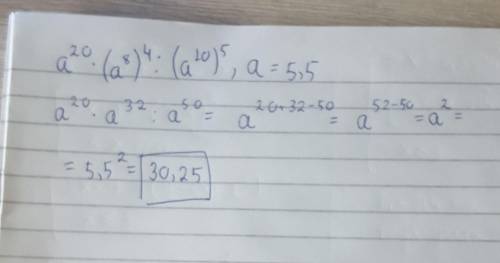 a²⁰·(a⁸)⁴:(a¹⁰)⁵, a = 5,5
a²⁰·a³²:a⁵⁰= a²⁰⁺³²⁻⁵⁰= a⁵²⁻⁵⁰=a²=
= 5,5²= 30,25